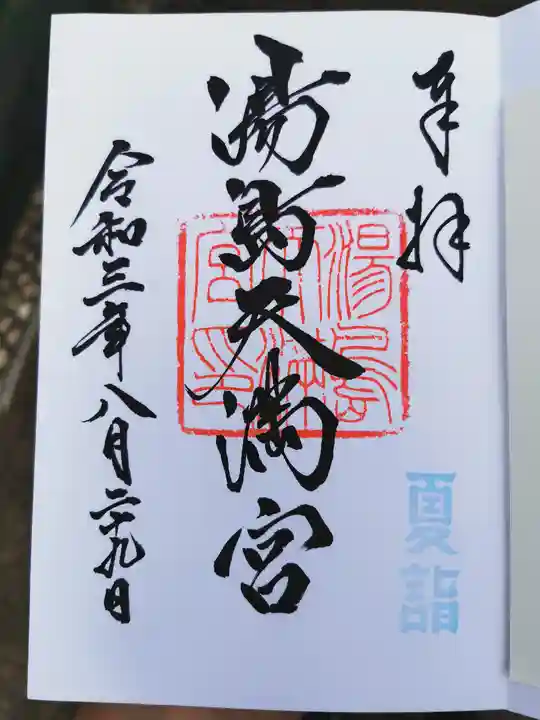 奉拝
夏詣
湯島天満宮
湯島
天満
宮印
令和三年八月二十九日